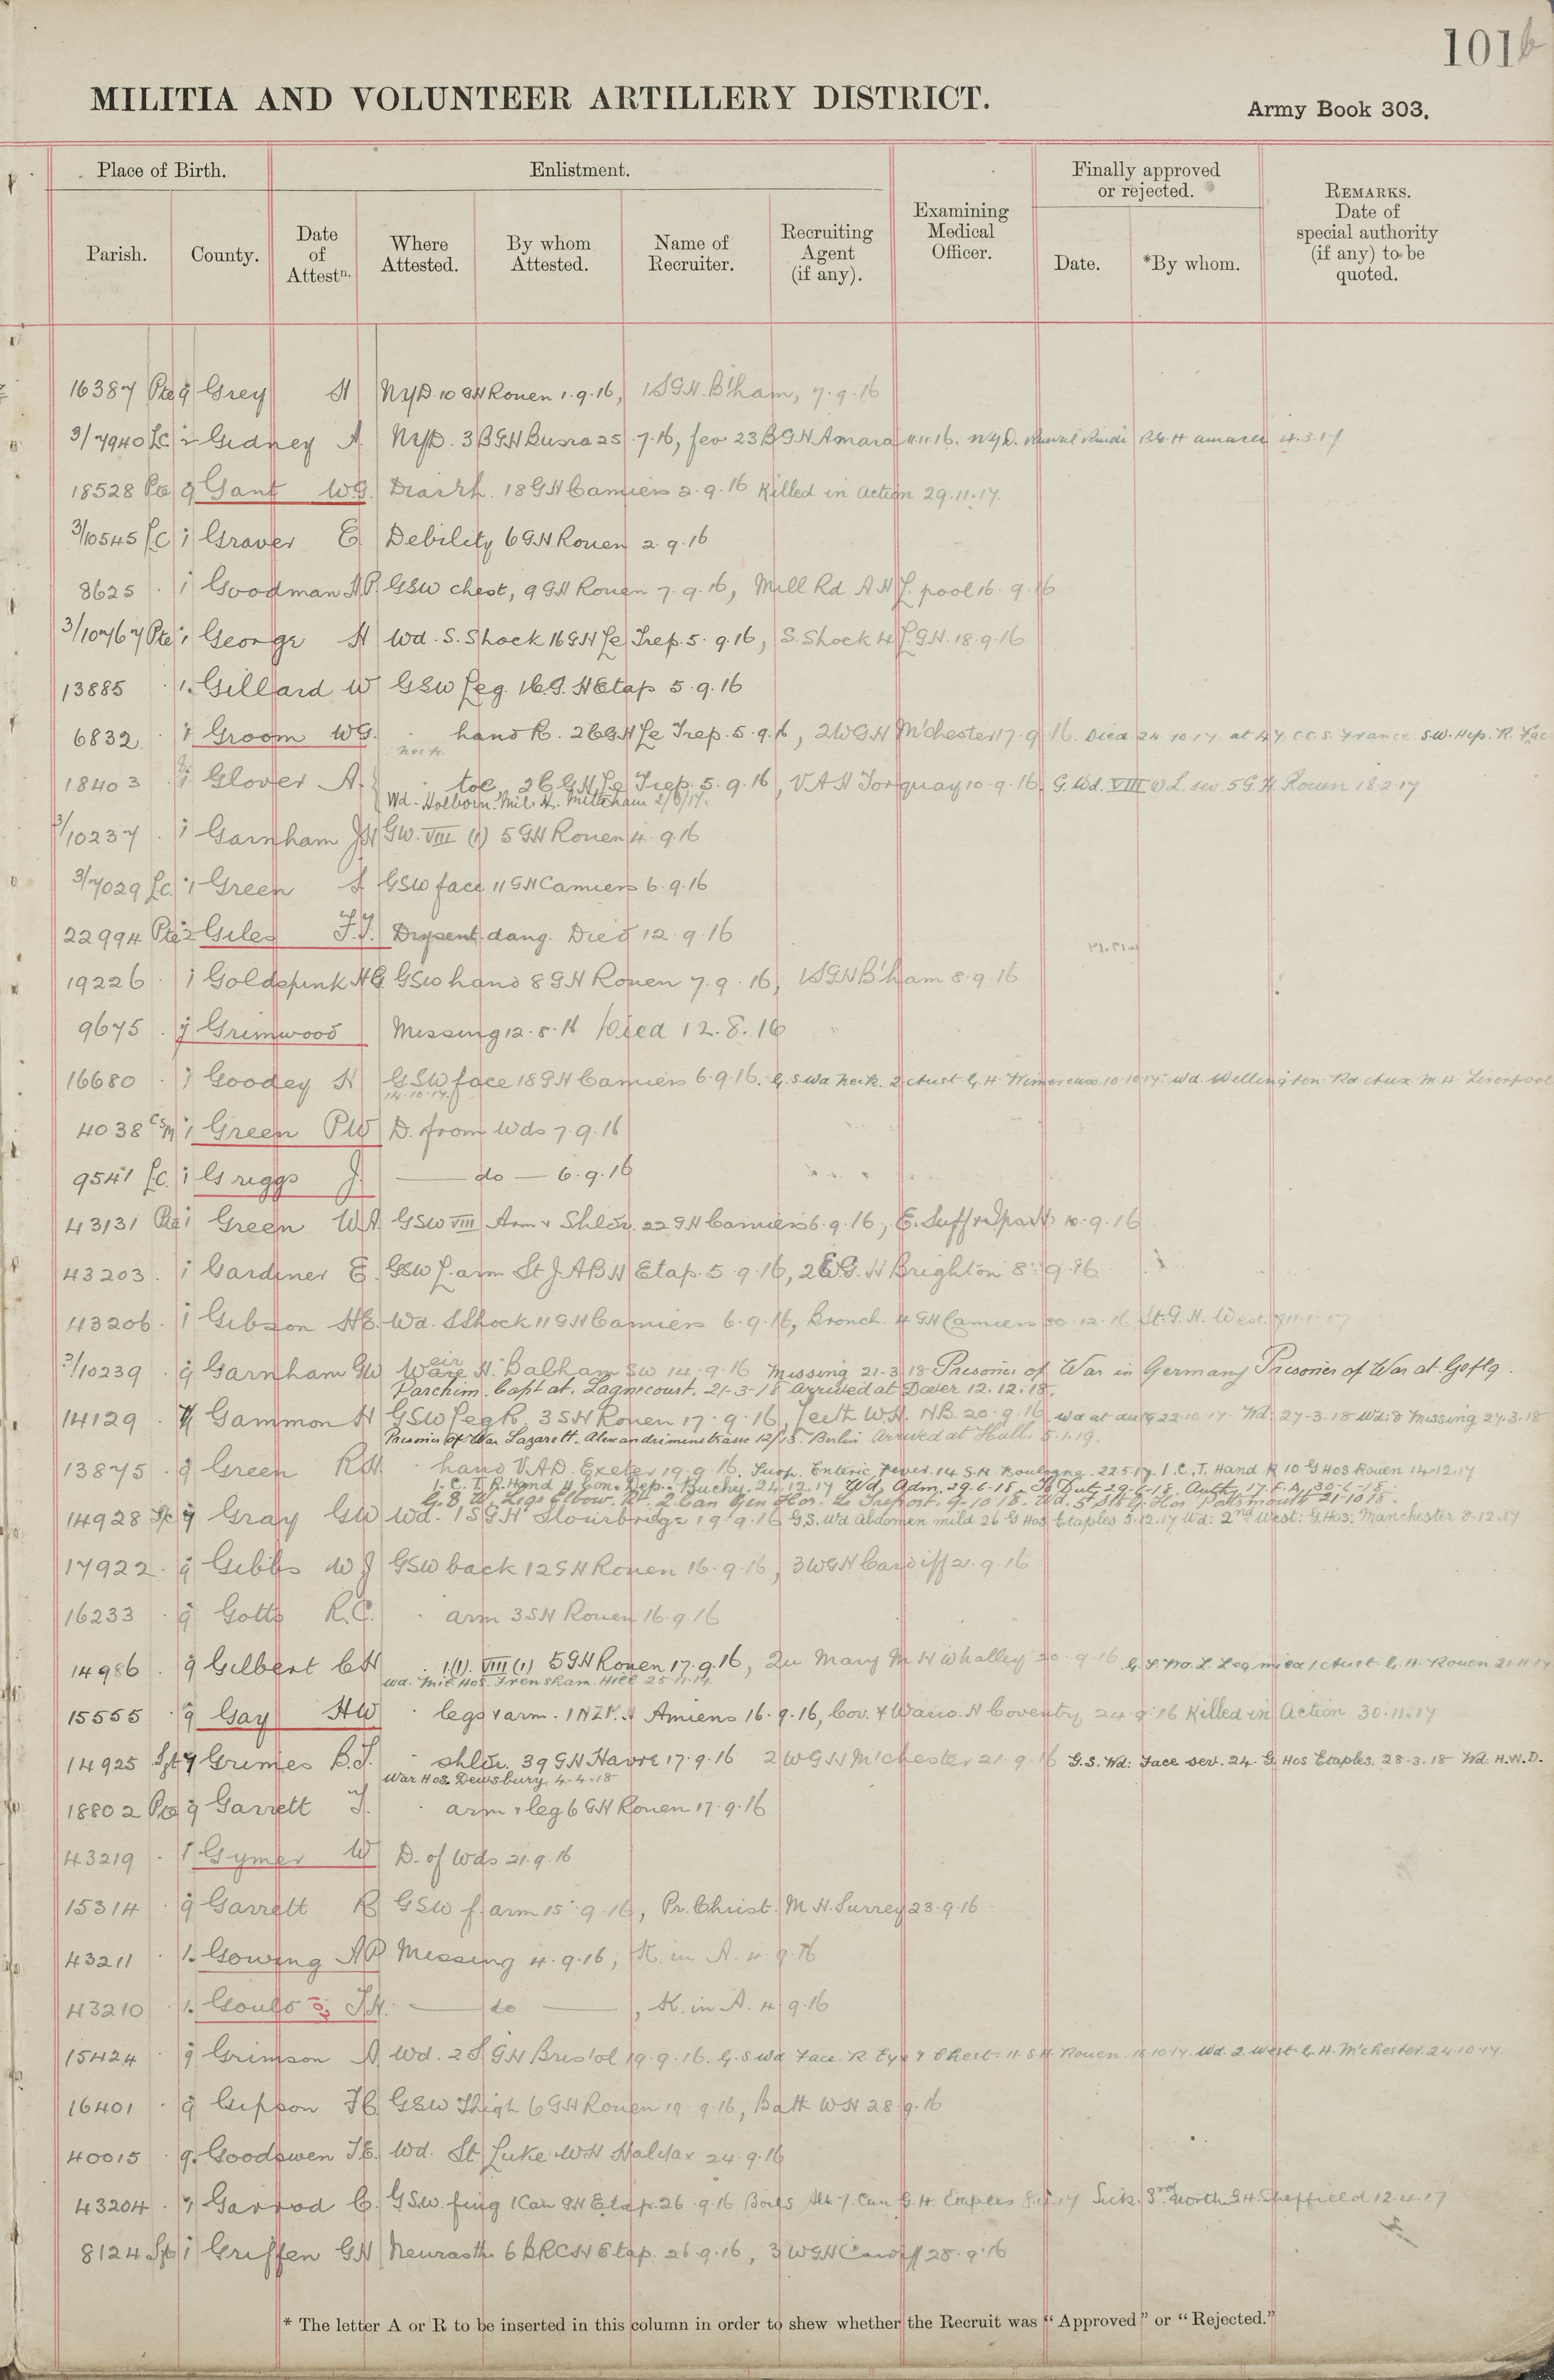 101b
MILITIA AND VOLUNTEER ARTILLERY DISTRICT.
Army Book 303.
Place of Birth.
Enlistment.
Finally approved
or rejected.
Parish.
County.
Date
of
Attestn.
Where
Attested.
By whom
Attested.
Name of
Recruiter.
Recruiting
Agent
(if any).
Examining
Medical
Officer.
Date.
*By whom.
REMARKS.
Date of
special authority
(if any) to be
quoted.
16387 Pte 9 Grey H NYD. 10 GH Rouen 1.9.16, 1SGH. B'ham, 7.9.16
3/7940 LC 2 Gidney A. NYD. 3BGH Busra 25.7.16, fev 23BGH Amara 11.11.16. NYD. Rawal Pindi B.G.H amara 4.3.17
18528 Pte 9 Gant WG. Diarrh. 18GH Camiers 2.9.16 Killed in Action 29.11.17.
3/10545 LC 1 Graver E Debility 6GH Rouen 2.9.16
8625 . 1 Goodman AP. GSW chest, 9GH Rouen 7.9.16, Mill Rd A H L.pool 16.9.16
3/10767 Pte 1 George H Wd. S.Shock 16GH Le Trep. 5.9.16, S.Shock 4 L.G.H. 18.9.16
13885 . 1. Gillard W GSW Leg. 16.G.H Etap 5.9.16
6832 . 1 Groom WG. . hand R. 26GH Le Trep. 5.9.16, 2WGH M'chester 17.9.16. Died 24.10.17. at 47. CCS France. SW. Hip. R. Fac
neck.
18403 . 9 Glover A. . toe, 26GH Le Trep. 5.9.16, VAH Torquay 10.9.16. G. Wd. VIII (1) L. sev. 5 G.H Rouen 18.2.17
Wd. Holborn. Mil. H. Mitcham 2/6/17.
3/10237 . 1 Garnham JH GW. VIII (1) 5GH Rouen 4.9.16
3/7029 LC. 1 Green S GSW face 11GH Camiers 6.9.16
22994 Pte 2 Giles F.J. Dysent. dang. Died 12.9.16
19226 . 1 Goldspink HG GSW hand 8GH Rouen 7.9.16, 1SGH B'ham 8.9.16
9675 . 7 Grimwood Missing 12.8.16 Died 12.8.16
16680 . 7 Goodey H GSW face 18GH Camiers 6.9.16. G.S.Wd Neck. 2 Aust. G.H. Wimereux. 10.10.17. Wd. Wellington Rd Aux M.H. Liverpool
14.10.17.
4038 CSM 1 Green PW D. from Wds 7.9.16
9541 LC 1 Griggs J. — do — 6.9.16
43131 Pte 1 Green WA GSW VIII Arm & Shldr. 22GH Camiers 6.9.16, 10.9.16
43203 . 1 Gardiner E. GSW L.arm St J.ABH Etap. 5.9.16, 2E.G.H Brighton 8.9.16
43206 . 1 Gibson HE. Wd. SShock 11GH Camiers 6.9.16, Bronch. 4 GH Camiers 30.12.16 St. G.H. West. 11.1.17
3/10239 . 9 Garnham GW Weir H. Balham SW 14.9.16 Missing 21.3.18 Prisoner of War in Germany Prisoner of War at Geflg.
Parchim. Capt at. Lagnicourt. 21-3-18 Arrived at Dover 12.12.18.
14129 . 7 Gammon H GSW Leg R. 3SH Rouen 17.9.16, Leith W.H. NB. 20.9.16 Wd at duty 22.10.17. Wd: 27-3-18 Wd: & Missing 27.3.18
Prisoner of War Lazarett. Alexandrinenstrasse 12/13 Berlin Arrived at Hull. 5.1.19.
13875 . 9 Green RH. . hand VAD. Exeter 19.9.16. Susp. Enteric Fever. 14 S.H. Boulogne. 22.5.17. I.C.T. Hand R 10 G Hos Rouen 14.12.17
I.C.T. R. Hand 11 Con. Dep. Buchy. 24.12.17 Wd. Adm. 29.6.18. To Dut. 29.6.18. Auth. 17.F.A, 30-6-18.
G.S.W. Legs Elbow. Rt. 2 Can Gen Hos. Le Treport. 9.10.18. Wd. 5 Sth G. Hos Portsmouth 21.10.18.
14928 9 Gray GW Wd. 1SGH Stourbridge 19.9.16 G.S. Wd Abdomen mild 26 G Hos Etaples 5.12.17 Wd: 2nd West: G.Hos: Manchester 8.12.17
17922 . 9 Gibbs WJ GSW back 12GH Rouen 16.9.16, 3WGH Cardiff 21.9.16
16233 . 9 Gotts R.C. . arm 3SH Rouen 16.9.16
14986 . 9 Gilbert CH . 1(1). VIII (1) 5GH Rouen 17.9.16, Qu Mary M H Whalley 20.9.16 G.S. Wd. L. Leg mild 1 Aust. G.H. Rouen 21.11.17
Wd. Mil Hos. Frensham. Hill 25.11.17.
15555 . 9 Gay HW . legs & arm. 1NZ.H Amiens 16.9.16, Cov. & Warw. H Coventry 24.9.16 Killed in Action 30.11.17
14925 Sjt 7 Grimes B.J. . shldr. 39GH Havre 17.9.16 2WGH M'chester 21.9.16 G.S. Wd: Face sev. 24. G. Hos Etaples. 28-3.18 Wd. H.W.D.
War Hos. Dewsbury 4.4.18
18802 Pte 9 Garrett J. . arm & leg 6GH Rouen 17.9.16
43219 . 1 Gymer W D. of Wds 21.9.16
15314 . 9 Garrett R GSW f.arm 15.9.16, Pr. Christ. M.H. Surrey 23.9.16
43211 . 1. Gowing AP Missing 4.9.16, K. in A. 4.9.16
43210 . 1. Gould J.H. — do —, K. in A. 4.9.16
15424 . 9 Grimson A Wd. 2SGH Bristol 19.9.16. G.S Wd Face. R. Eye & Chest. 11.S.H. Rouen. 16.10.17. Wd. 2. West. G.H. M'chester. 24.10.17.
16401 . 9 Gipson FC GSW Thigh 6GH Rouen 19.9.16, Bath WH 28.9.16
40015 . 9. Goodswen JE. Wd. St Luke WH Halifax 24.9.16
43204 . 7 Garrod C. GSW. fing 1Can GH Etap. 26.9.16 Boils 7. Can G.H. Etaples 17 Sick. 3rd North GH. Sheffield 12.4.17
8124 Sjt 1 Griffen GH Neurasth. 6BRCH Etap. 26.9.16, 3WGH Cardiff 28.9.16
* The letter A or R to be inserted in this column in order to shew whether the Recruit was “Approved” or “Rejected.”